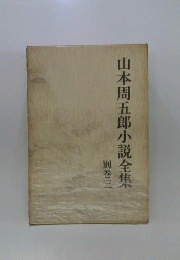 山本周五郎小説全集
別巻二